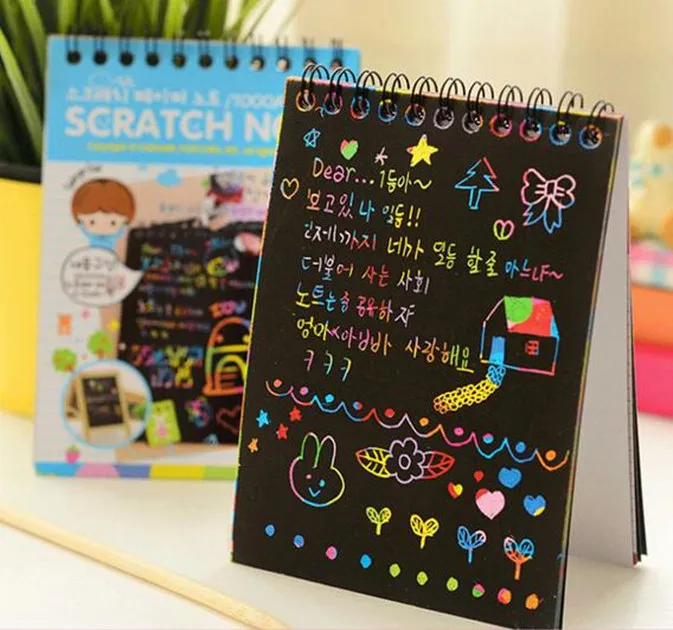 스크래치 페이퍼 노트 /1000A
SCRATCH NO
Dear...1등아~
보고있나 일등!!
언제까지 네가 일등 할줄 아느냐~
더불어 사는 사회
노트는좀 공유하자
엄마<아빠 사랑해요
ㅋㅋㅋ